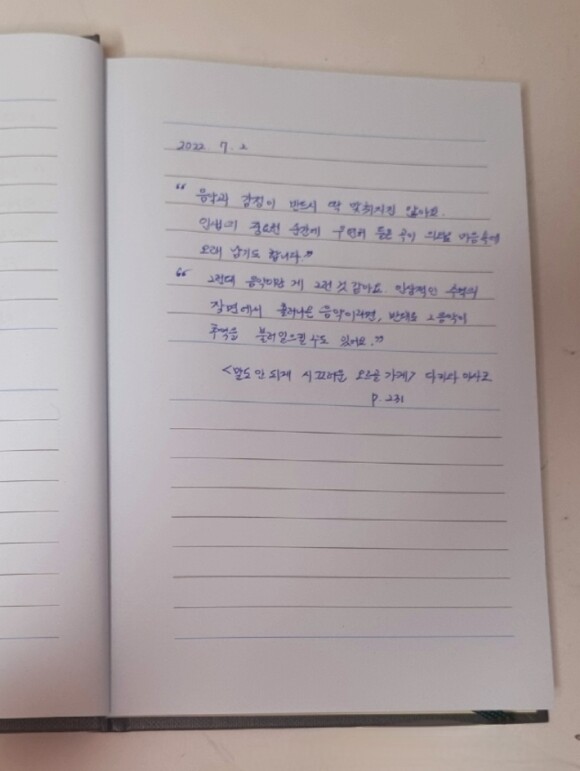 2022. 7. 2
“ 음악과 감정이 반드시 딱 맞춰지진 않아요.
인생의 중요한 순간에 우연히 들은 곡이 의외로 마음속에
오래 남기도 합니다.”
“ 그런데 음악이란 게 그런 것 같아요. 인상적인 추억의
장면에서 흘러나온 음악이라면, 반대로 그 음악이
추억을 불러일으킬 수도 있어요.”
<말도 안 되게 시끄러운 오르골 가게> 다키와 아사코
p. 231